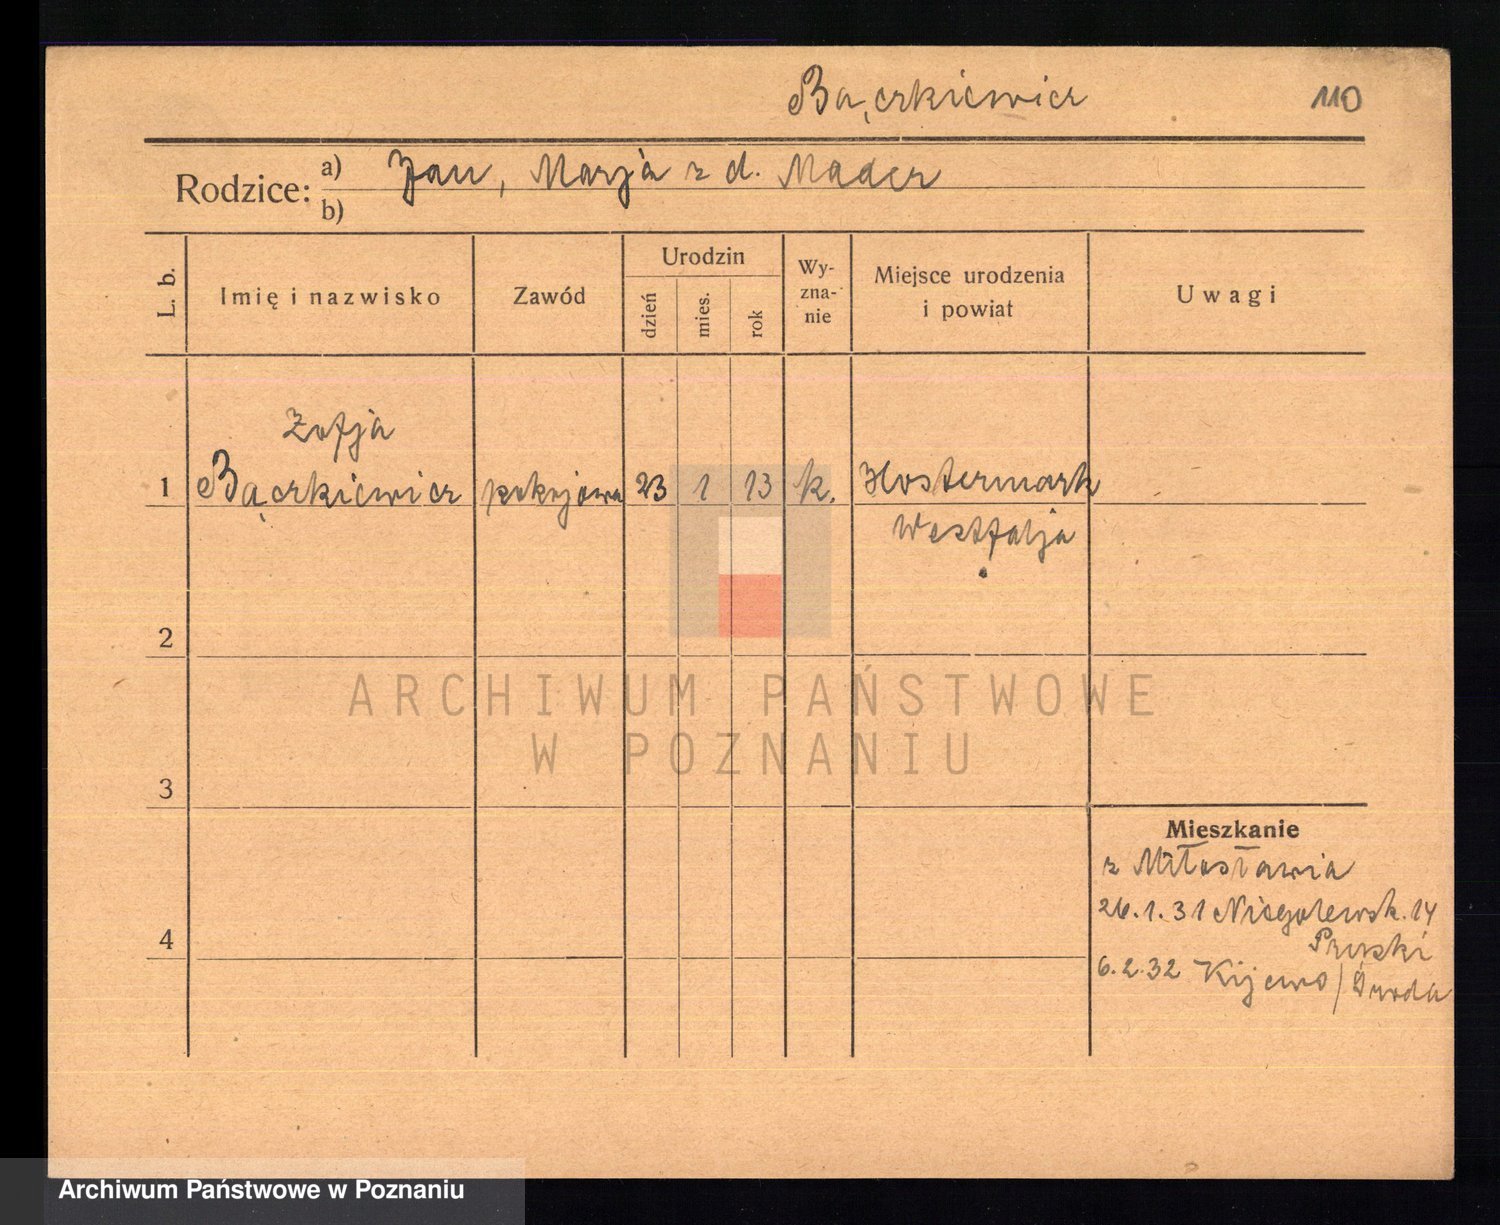 Bączkiewicz 110
Rodzice: a) Jan, Marja z d. Mader
b)
L. b. Imię i nazwisko Zawód Urodzin dzień mies. rok Wy-zna-nie Miejsce urodzenia i powiat Uwagi
Zofja
1 Bączkiewicz pokojowa 23 1 13 k. Hostermark
Westfalja
2
ARCHIWUM PAŃSTWOWE
W POZNANIU
3
Mieszkanie
z Miłosławia
26.1.31 Niegolewsk. 14
Pruski
4
6.2.32 Kijewo / Środa
Archiwum Państwowe w Poznaniu